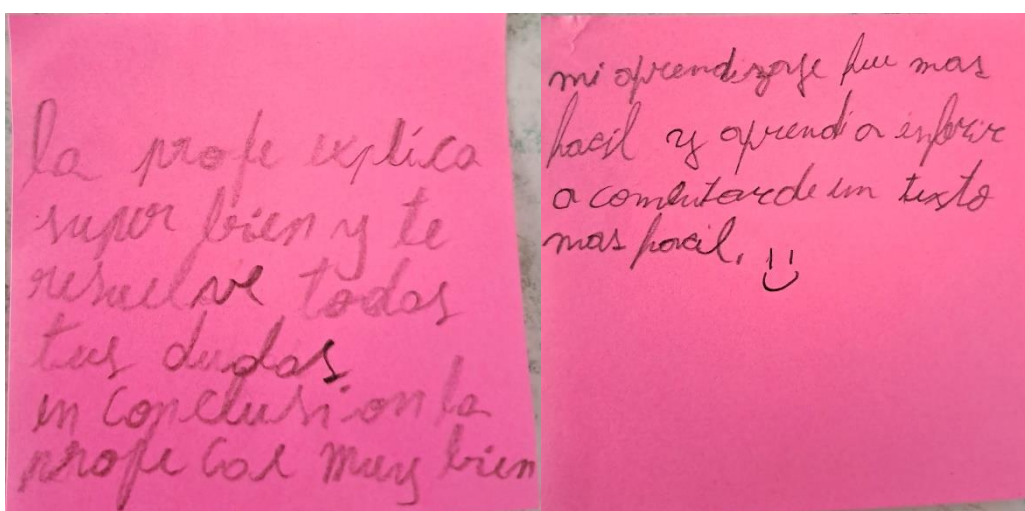 la profe explica
super bien y te
resuelve todas
tus dudas
en conclusion la
profe cae muy bien
mi aprendizaje fue mas
facil y aprendi a inferir
a comentar de un texto
mas facil.